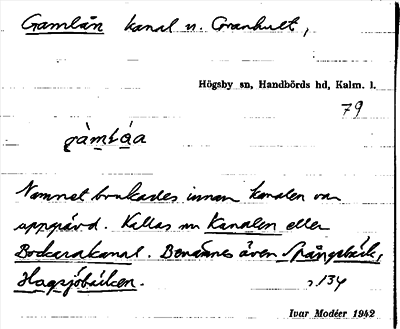 Gamlån kanal n. Granhult,
Högsby sn, Handbörds hd, Kalm. l.
79
gàmlåa
Namnet brukades innan kanalen var
uppgrävd. Kallas nu Kanalen eller
Bockarakanal. Benämnes även Spångsbäck,
Hagsjöbäcken. , 134
Ivar Modéer 1942